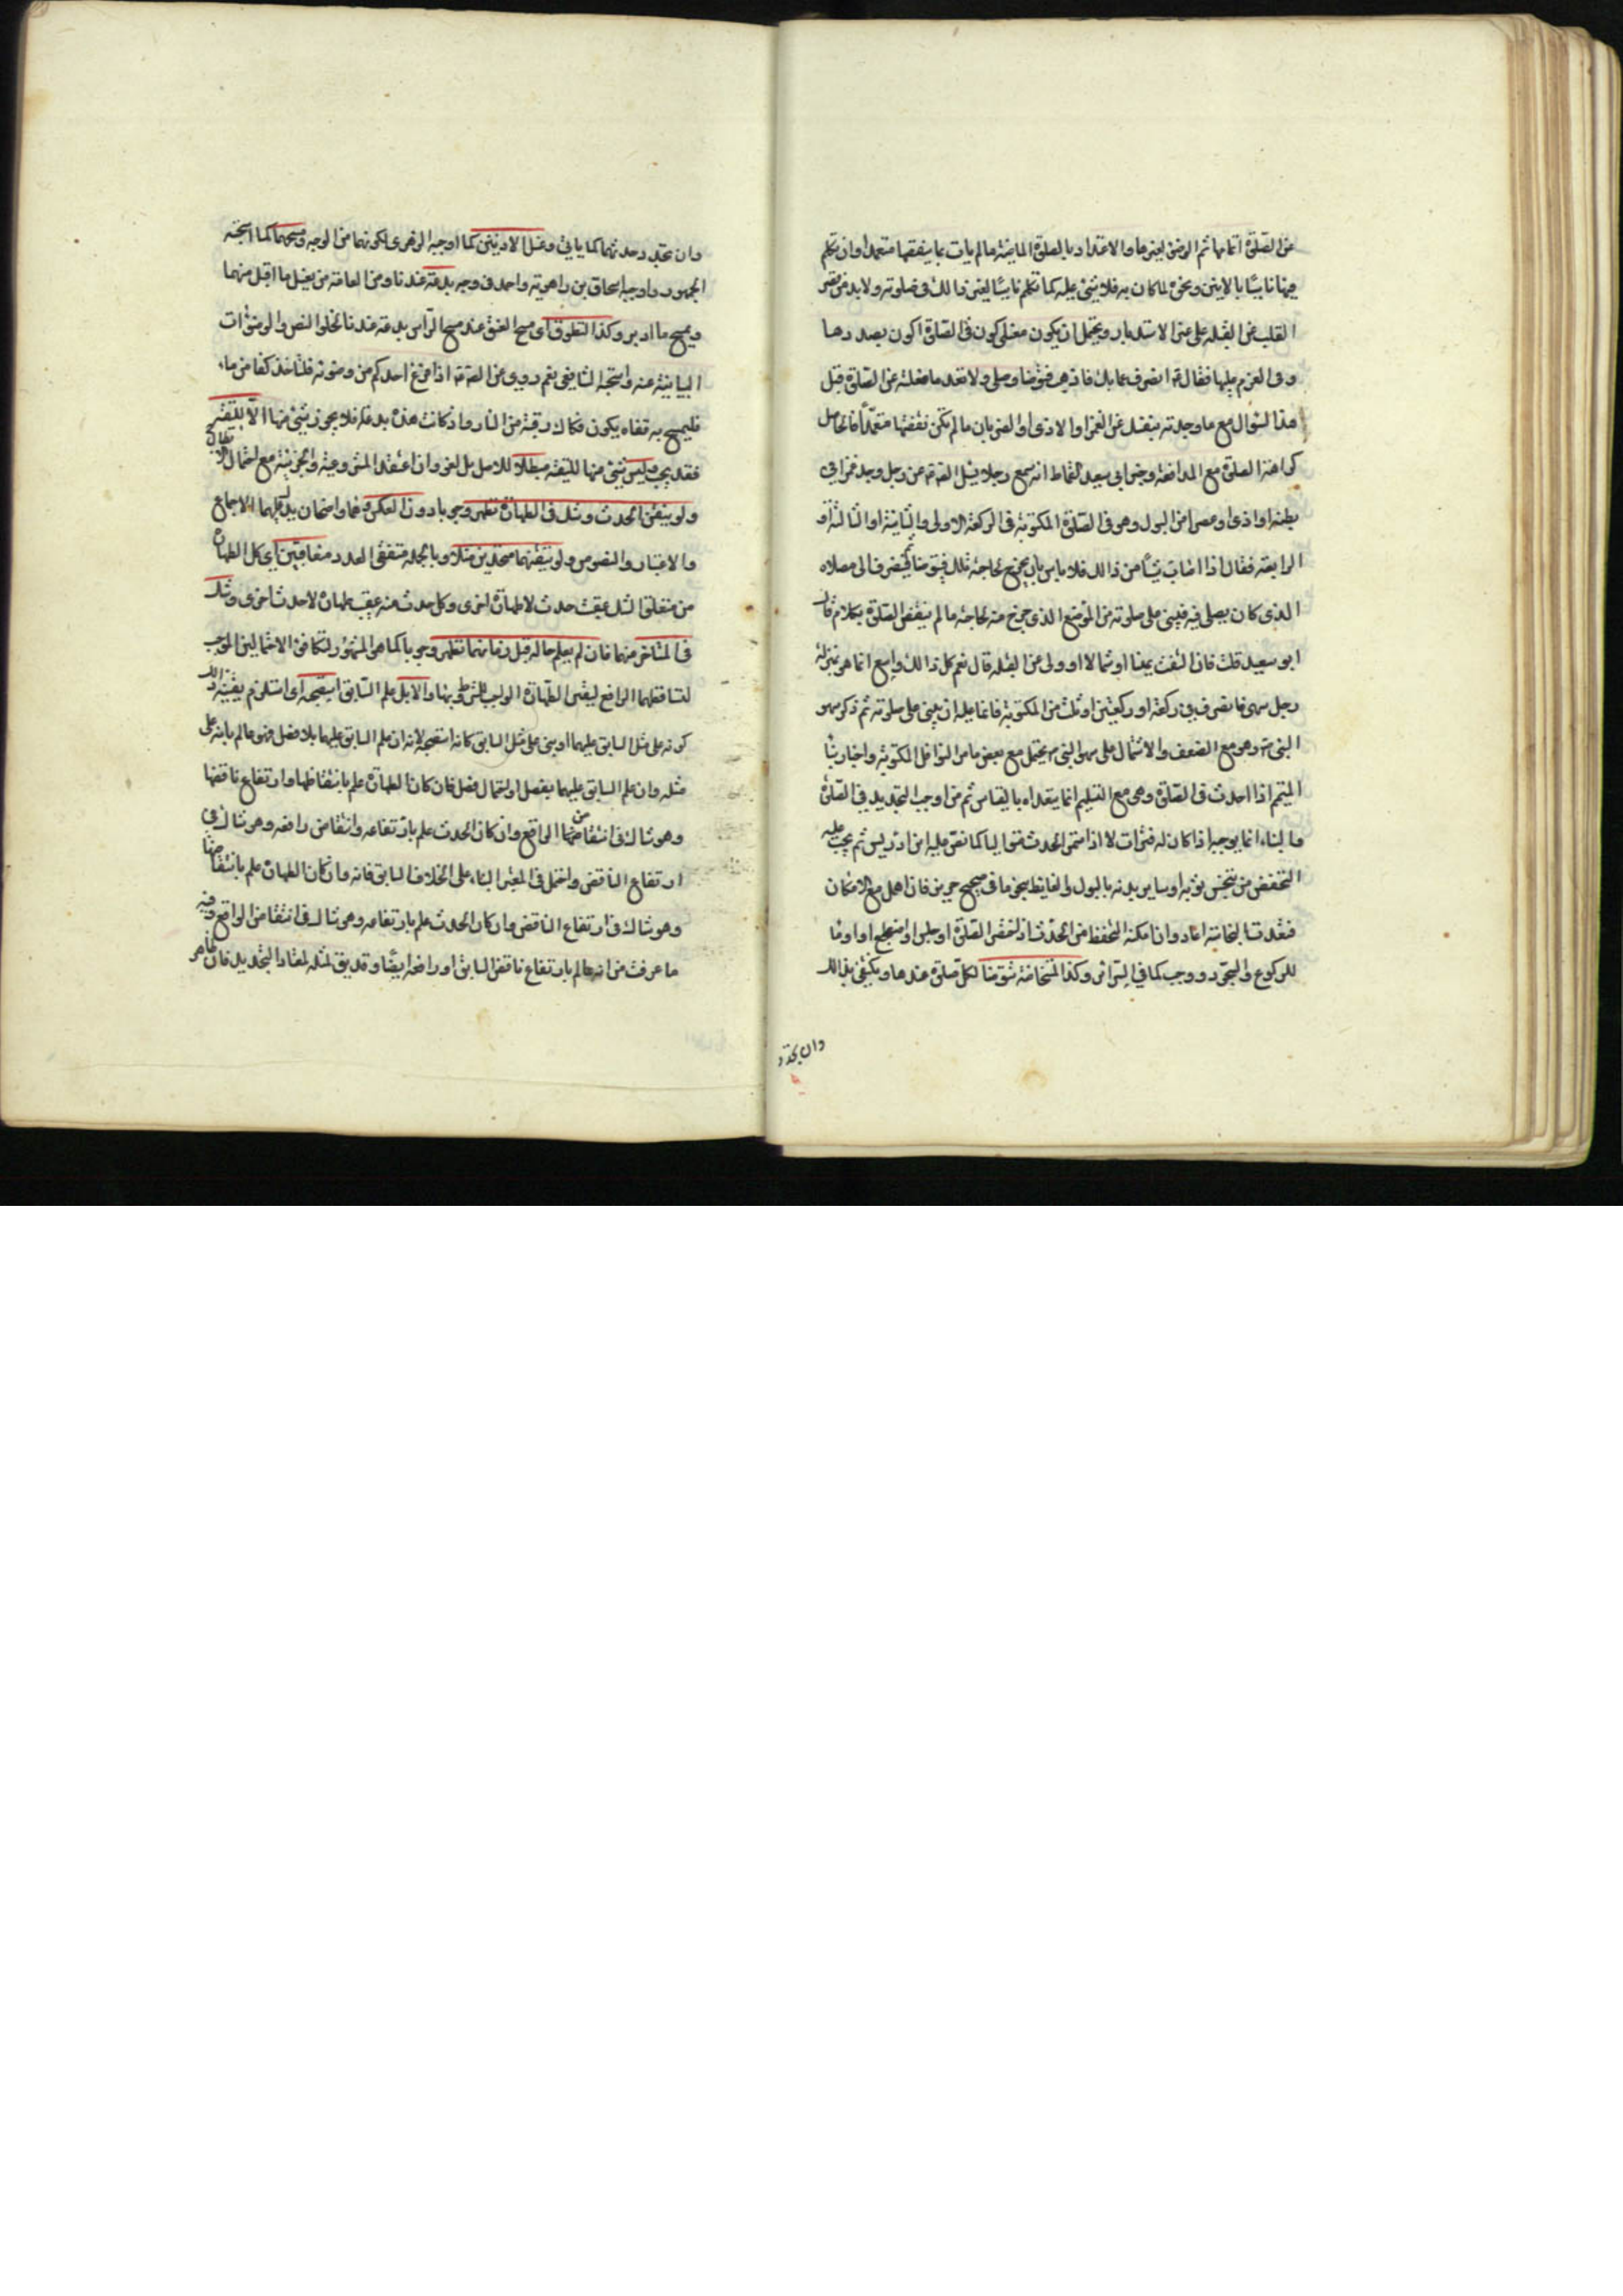 من الصلوة اتمامها ثم الوضوء لغيرها والاعتداد بالصلوة الماضية ما لم يات بما ينقضها متعمدا وان تكلم
فيها ناسيا بالانين ونحوه لما كان به فلا شئ عليه كما تكلم ناسيا يعنى ذالك فى صلوته ولا بد من
القلب عن القبلة على عن الاستدبار ويحتمل ان يكون معنى كون فى الصلوة اكون بصددها
وفى العزم عليها فقال انصرف عما بك فاذهب فتوضأ وصل ولا تعد ما فعلته من الصلوة قبل
هذا السؤال مع ما وجدته
كراهة الصلوة مع المدافعة وخبر ابى سعيد القماط انه سمع رجلا يسئل الصادق عن رجل وجد غمزا فى
بطنه او اذى او عصرا من البول وهو فى الصلوة المكتوبة فى الركعة الاولى او الثانية او الثالثة او
الرابعة فقال اذا اصاب شيئا من ذالك فلا باس بان يخرج لحاجته تلك فيتوضأ ثم ينصرف الى مصلاه
الذى كان يصلى فيه فيبنى على صلوته من الموضع الذى خرج منه لحاجته ما لم ينقض الصلوة بكلام قال
ابو سعيد قلت فان التفت يمينا او شمالا او ولى عن القبلة قال نعم كل ذالك واسع انما هو بمنزلة
رجل سهى فانصرف فى ركعة او ركعتين او ثلث من المكتوبة فانما عليه ان يبنى على صلوته ثم ذكر سهو
النبى وهو مع الضعف والاشتمال على سهو النبى يحتمل مع بعض ما مر النوافل المكتوبة واخبار بناء
المتيمم اذا احدث فى الصلوة وهى مع التسليم انما يتعداه بالقياس ثم من اوجب التجديد فى الصلوة
والبناء انما يوجبه اذا كان له فترات لا اذا استمر الحدث متواليا كما نص عليه ابن ادريس ثم يجب عليه
التحفظ من تنجس ثوبه او ساير بدنه بالبول والغايط بنحو ما فى صحيح حريز فان اهمل مع الامكان
فتعدت النجاسة اعاد وان امكنه التحفظ من الحدث اذا اختصر الصلوة او جلس او اضطجع او اومأ
للركوع والسجود ووجب كما فى السرائر وكذا المستحاضة تتوضأ لكل صلوة عندها ويكتفى بذالك
وان تجدد
وان تجدد حدثهما كما ياتى وغسل الاذنين كما اوجبه الزهرى لكونهما من الوجه ومسحهما كما استحبه
الجمهور واوجبه اسحاق بن راهويه واحمد فى وجه بدعة عندنا ومن العامة من يغسل ما اقبل منهما
ويمسح ما ادبر وكذا التطوق اى مسح العنق عند مسح الراس بدعة عندنا لخلو النصوص والوضوئات
البيانية عنه واستحبه الشافعى نعم روى عن الصادق اذا فرغ احدكم من وضوئه فلياخذ كفا من ماء
فليمسح به قفاه يكون فكاك رقبته من النار واذ كانت هذه بدعا فلا يجوز شئ منها الا للتقية
فقد يجب وليس شئ منها للتقية مبطلا للاصل بل لغو وان اعتقد المشروعية والجزئية مع احتمال البطلان
ولو تيقن الحدث وشك فى الطهارة تطهر وجوبا دون العكس وهما واضحان يدل عليهما الاجماع
والاعتبار والنصوص ولو تيقنهما متحدين مثلا وبالجملة متفقى العدد متعاقبين اى كل الطهارة
من متعلق الشك عقيب حدث لا طهارة اخرى وكل حدث منه عقيب طهارة لا حدث اخرى وشك
فى المتاخر منهما فان لم يعلم حاله قبل زمانهما تطهر وجوبا كما هو المشهور لتكافؤ الاحتمالين الموجب
لتساقطهما الرافع ليقين الطهارة الواجب للمشروط بها والا بل علم السابق استصحبه اى استلزم يقينه ذالك
كونه على مثل السابق عليهما او بنى على مثل السابق كانه استصحبه لانه ان علم السابق عليهما بلا فصل فهو عالم بانه على
مثله وان علم السابق عليهما بفصل او احتمال فصل فان كان الطهارة علم بانتقاضها وارتفاع ناقضها
وهو شاك فى انتقاضها من الواقع وان كان الحدث علم بارتفاعه وانتقاض رافعه وهو شاك فى
ارتفاع الناقض واحتمل فى المعتبر البناء على الخلاف السابق فانه وان كان الطهارة علم بانتقاضها
وهو شاك فى ارتفاع الناقض وان كان الحدث علم بارتفاعه وهو شاك فى انتقاض الواقع وفيه
ما عرفت من انه عالم بارتفاع ناقض السابق او رافعه ايضا وقد يق لمثله لمعتاد التجديد فان ظاهر